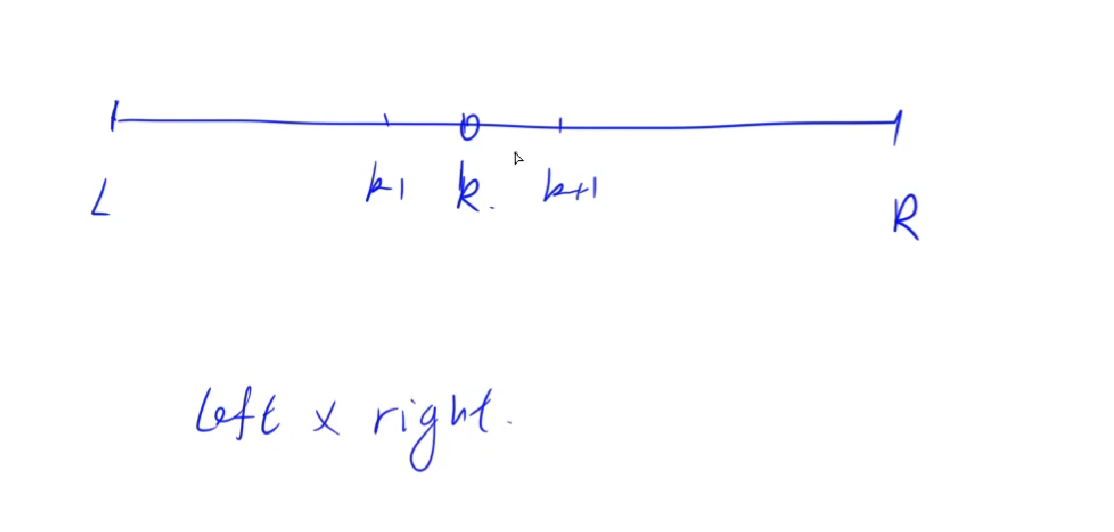 L k-1 k. k+1 R
left x right.